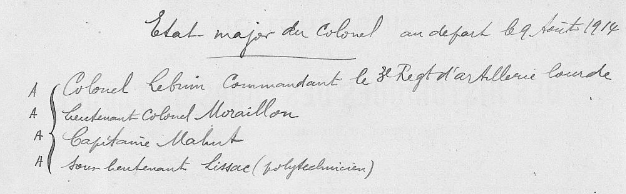 Etat-major du Colonel au depart le 9 Août 1914
A Colonel Lebrun Commandant le 3e Regt d'artillerie lourde
A Lieutenant Colonel Moraillon
A Capitaine Mahut
A Sous-lieutenant Lissac (polytechnicien)